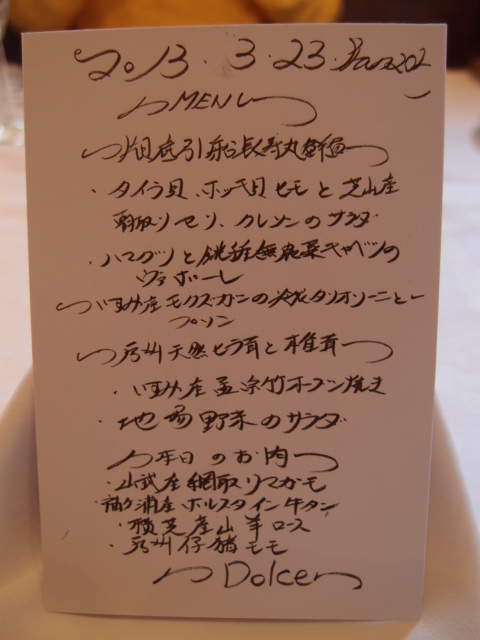 2013.3.23. Pranzo
MENU
底引船長寿丸鮮魚
・タイラ貝、ホッキ貝ヒモと芝山産
朝取リセリ、クレソンのサラダ
・ハマグリと銚子無農薬キャベツの
ヴァポーレ
いすみ産モクズガニの冷製タリオリーニと
プソン
房州天然ヒラ茸と椎茸
・いすみ産孟宗竹オーブン焼き
・地場野菜のサラダ
本日のお肉
・山武産網取リマガモ
・袖ヶ浦産ホルスタイン牛タン
・横芝産山羊ロース
・房州仔猪モモ
Dolce